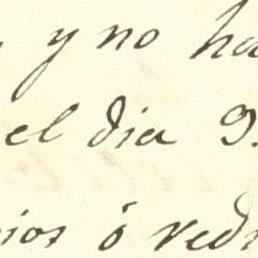 y no ha
el dia 9.
ios ó red